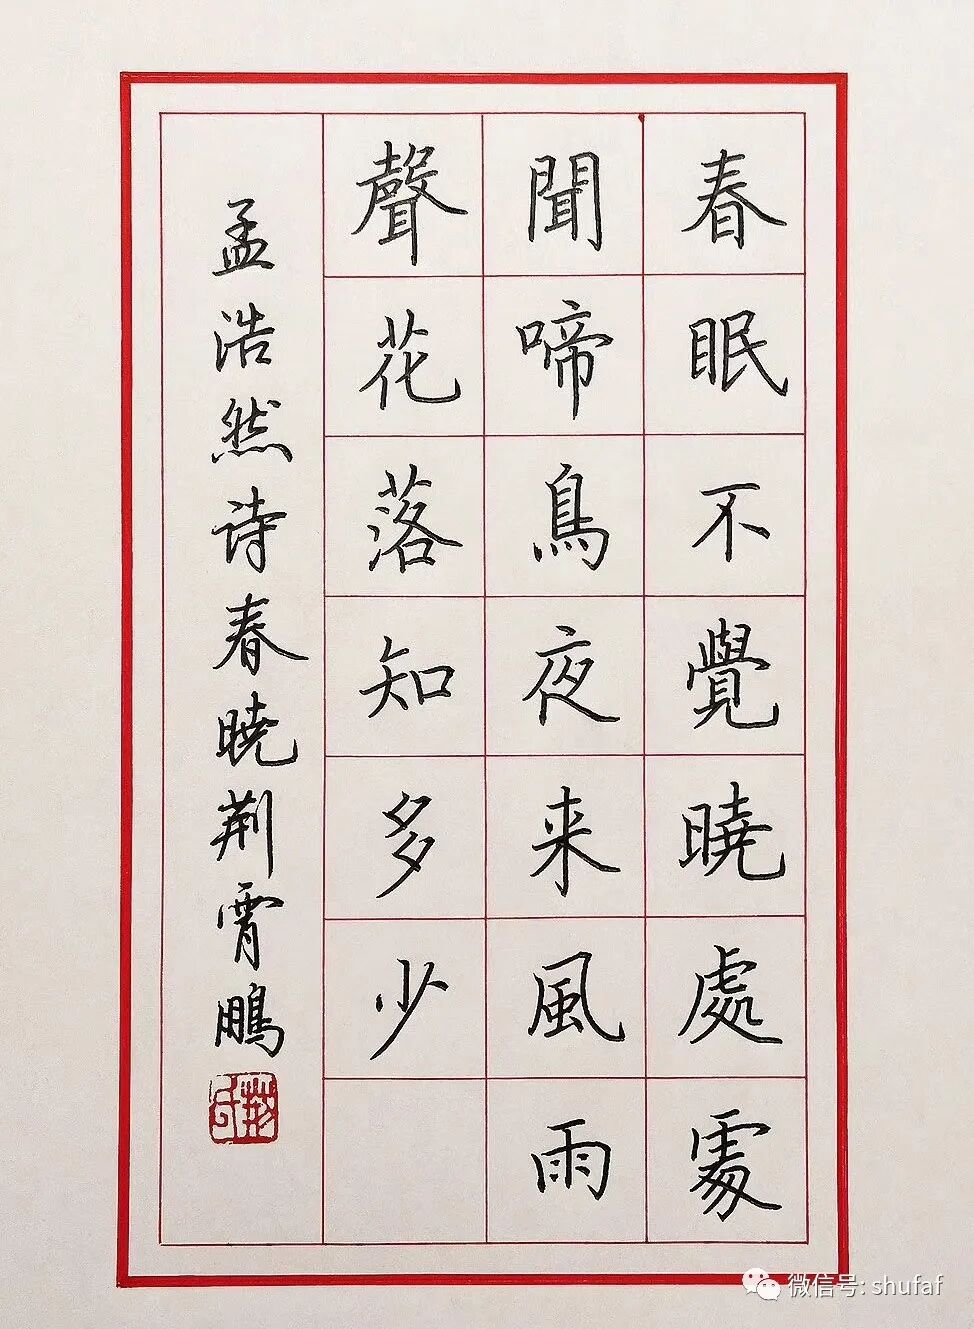 春眠不覺曉處䖏
聞啼鳥夜来風雨
聲花落知多少
孟浩然诗春曉荆霄鵬
微信号: shufaf